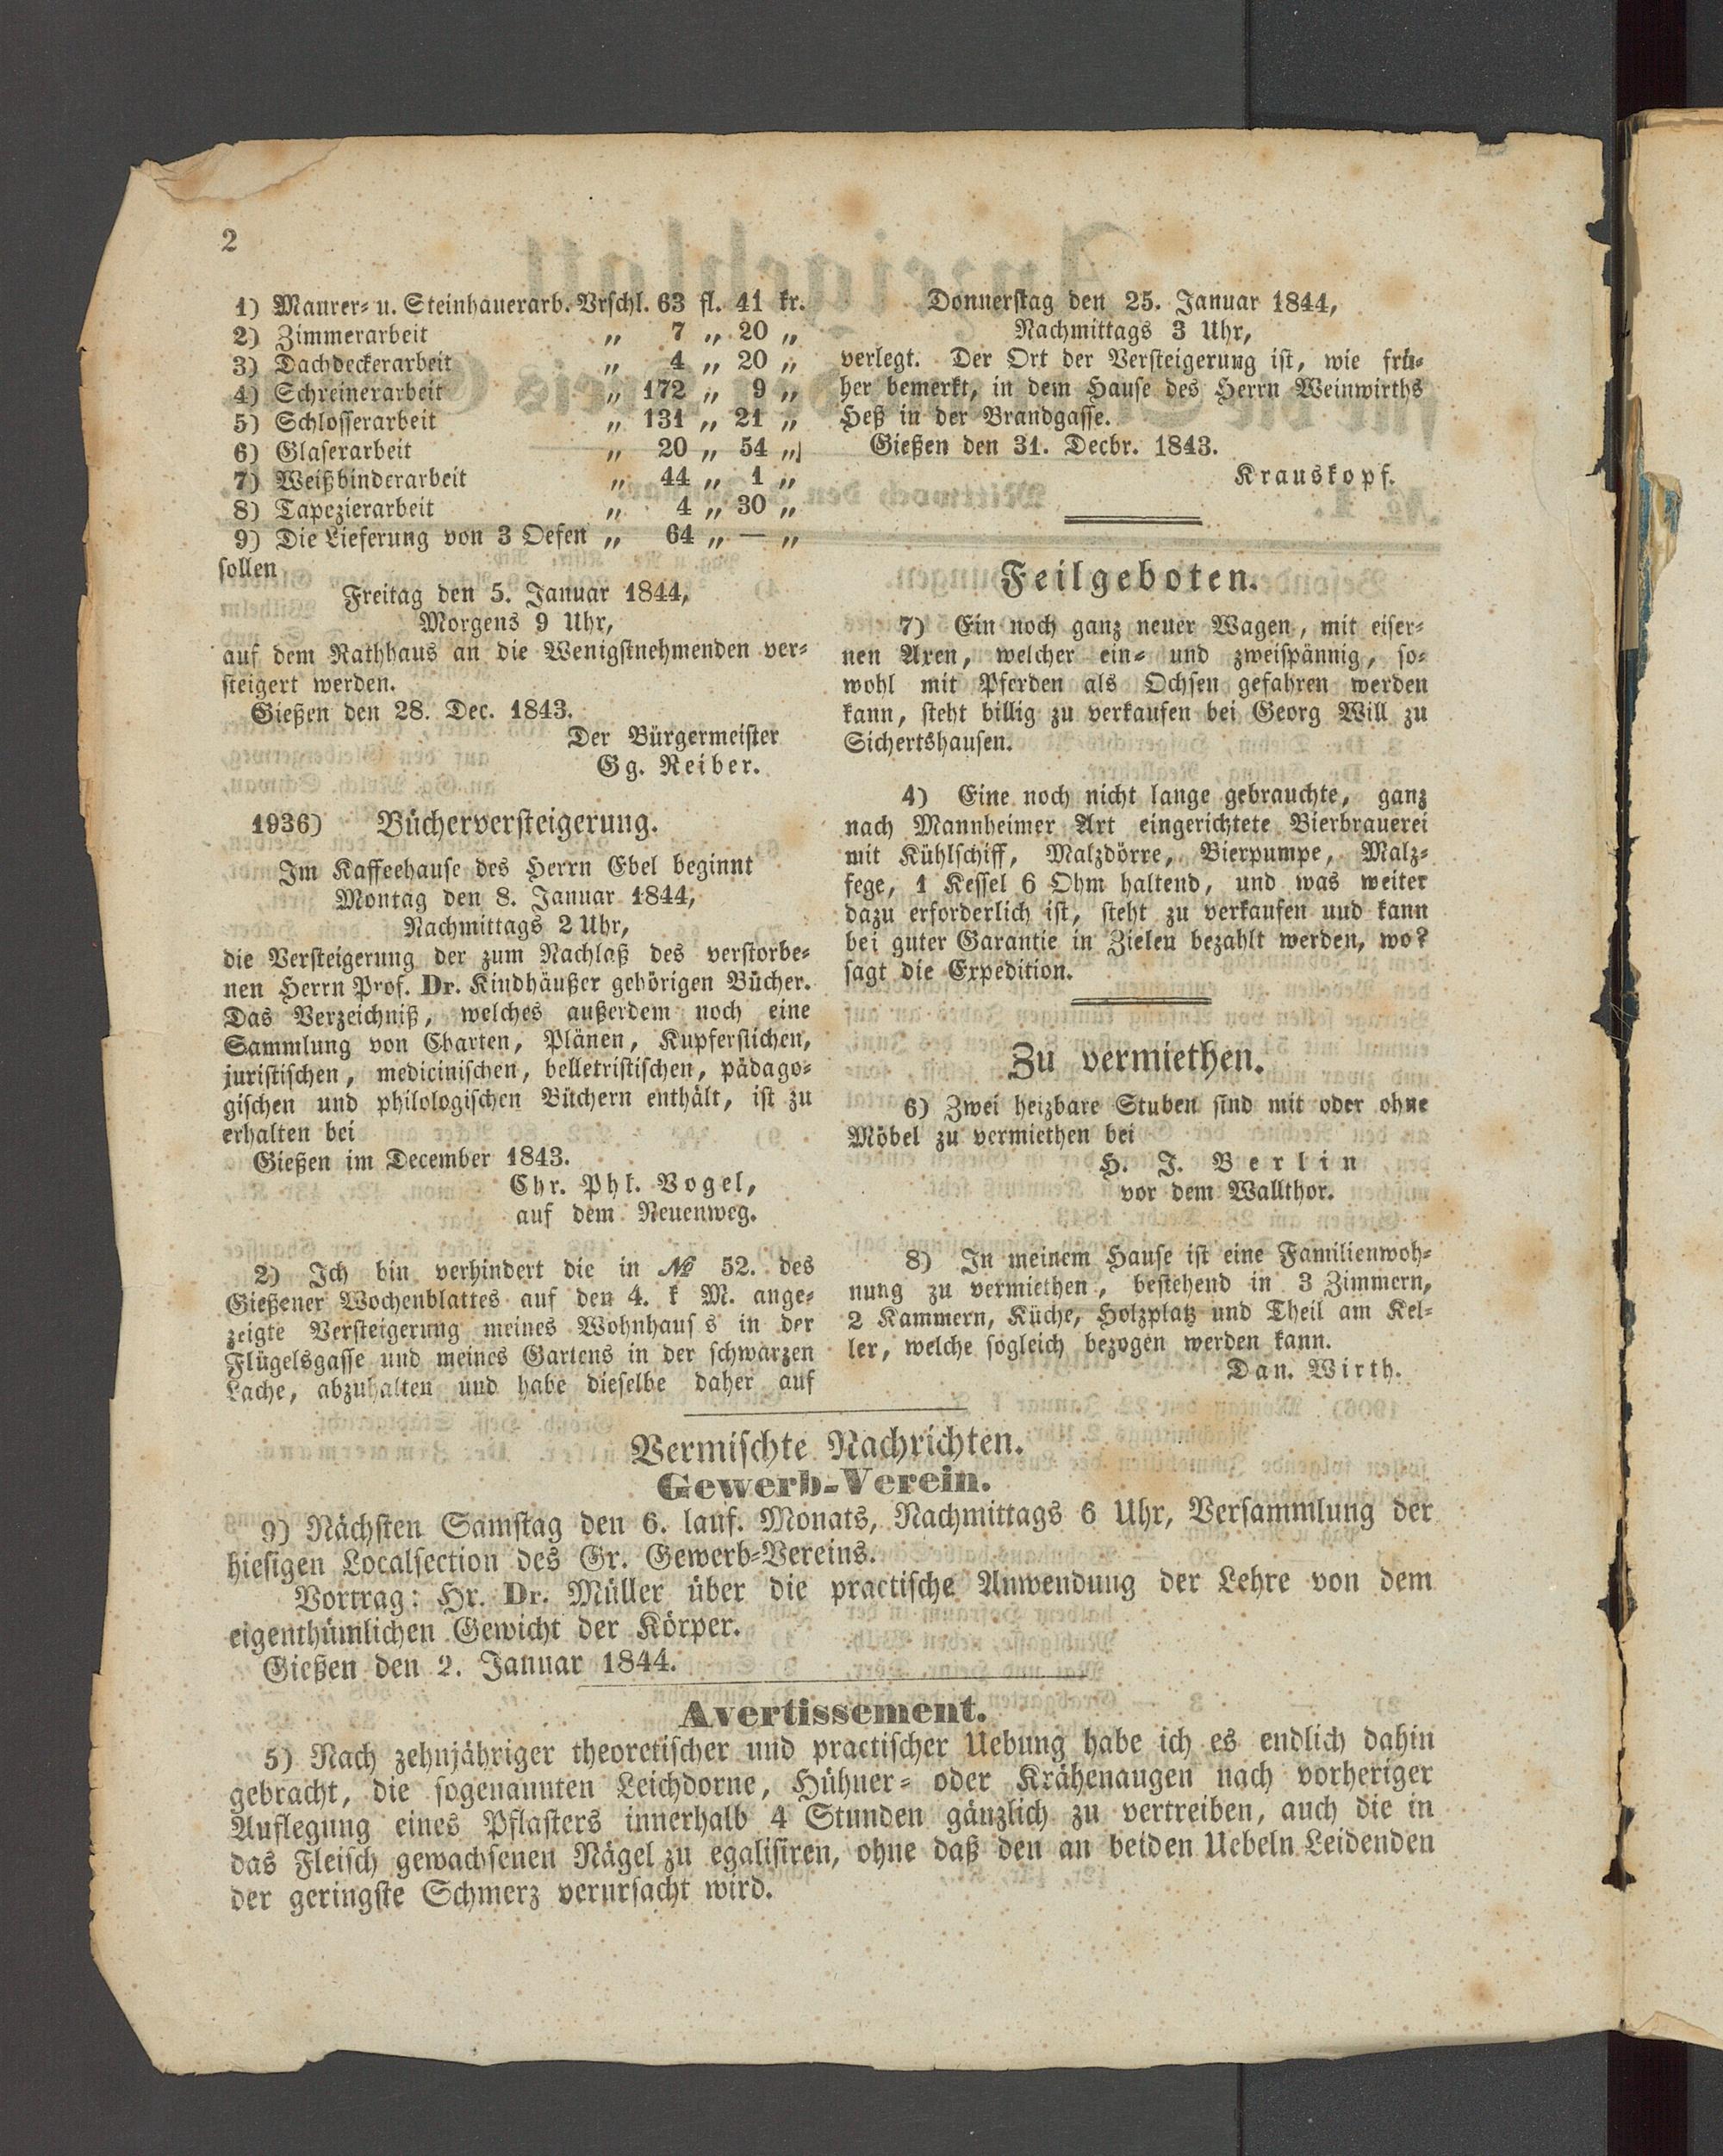 2
1) Maurer- u. Steinhauerarb. Vrschl. 63 fl. 41 kr.
2) Zimmerarbeit „ 7 „ 20 „
3) Dachdeckerarbeit „ 4 „ 20 „
4) Schreinerarbeit „ 172 „ 9 „
5) Schlosserarbeit „ 131 „ 21 „
6) Glaserarbeit „ 20 „ 54 „
7) Weißbinderarbeit „ 44 „ 1 „
8) Tapezierarbeit „ 4 „ 30 „
9) Die Lieferung von 3 Oefen „ 64 „ — „
sollen
Freitag den 5. Januar 1844,
Morgens 9 Uhr,
auf dem Rathhaus an die Wenigstnehmenden ver-
steigert werden.
Gießen den 28. Dec. 1843.
Der Bürgermeister
Gg. Reiber.
1936) Bücherversteigerung.
Im Kaffeehause des Herrn Ebel beginnt
Montag den 8. Januar 1844,
Nachmittags 2 Uhr,
die Versteigerung der zum Nachlaß des verstorbe-
nen Herrn Prof. Dr. Kindhäußer gehörigen Bücher.
Das Verzeichniß, welches außerdem noch eine
Sammlung von Charten, Plänen, Kupferstichen,
juristischen, medicinischen, belletristischen, pädago-
gischen und philologischen Büchern enthält, ist zu
erhalten bei
Gießen im December 1843.
Chr. Phl. Vogel,
auf dem Neuenweg.
2) Ich bin verhindert die in № 52. des
Gießener Wochenblattes auf den 4. k M. ange-
zeigte Versteigerung meines Wohnhaus s in der
Flügelsgasse und meines Gartens in der schwarzen
Lache, abzuhalten und habe dieselbe daher auf
Donnerstag den 25. Januar 1844,
Nachmittags 3 Uhr,
verlegt. Der Ort der Versteigerung ist, wie frü-
her bemerkt, in dem Hause des Herrn Weinwirths
Heß in der Brandgasse.
Gießen den 31. Decbr. 1843.
Krauskopf.
Feilgeboten.
7) Ein noch ganz neuer Wagen, mit eiser-
nen Axen, welcher ein- und zweispännig, so-
wohl mit Pferden als Ochsen gefahren werden
kann, steht billig zu verkaufen bei Georg Will zu
Sichertshausen.
4) Eine noch nicht lange gebrauchte, ganz
nach Mannheimer Art eingerichtete Bierbrauerei
mit Kühlschiff, Malzdörre, Bierpumpe, Malz-
fege, 1 Kessel 6 Ohm haltend, und was weiter
dazu erforderlich ist, steht zu verkaufen und kann
bei guter Garantie in Zielen bezahlt werden, wo?
sagt die Expedition.
Zu vermiethen.
6) Zwei heizbare Stuben sind mit oder ohne
Möbel zu vermiethen bei
H. J. Berlin
vor dem Wallthor.
8) In meinem Hause ist eine Familienwoh-
nung zu vermiethen, bestehend in 3 Zimmern,
2 Kammern, Küche, Holzplatz und Theil am Kel-
ler, welche sogleich bezogen werden kann.
Dan. Wirth.
Vermischte Nachrichten.
Gewerb-Verein.
9) Nächsten Samstag den 6. lauf. Monats, Nachmittags 6 Uhr, Versammlung der
hiesigen Localsection des Gr. Gewerb-Vereins.
Vortrag: Hr. Dr. Müller über die practische Anwendung der Lehre von dem
eigenthümlichen Gewicht der Körper.
Gießen den 2. Januar 1844.
Avertissement.
5) Nach zehnjähriger theoretischer und practischer Uebung habe ich es endlich dahin
gebracht, die sogenannten Leichdorne, Hühner- oder Krähenaugen nach vorheriger
Auflegung eines Pflasters innerhalb 4 Stunden gänzlich zu vertreiben, auch die in
das Fleisch gewachsenen Nägel zu egalisiren, ohne daß den an beiden Uebeln Leidenden
der geringste Schmerz verursacht wird.